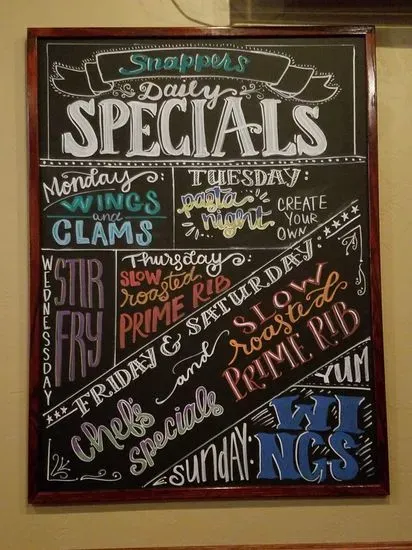 Snappers
Daily
SPECIALS
Monday:
WINGS
and
CLAMS
TUESDAY:
pasta
night
CREATE
YOUR
OWN
WEDNESSDAY
STIR
FRY
Thursday:
SLOW
roasted
PRIME RIB
FRIDAY & SATURDAY:
SLOW
roasted
PRIME RIB
and
chef's
specials
YUM
sunday:
WINGS